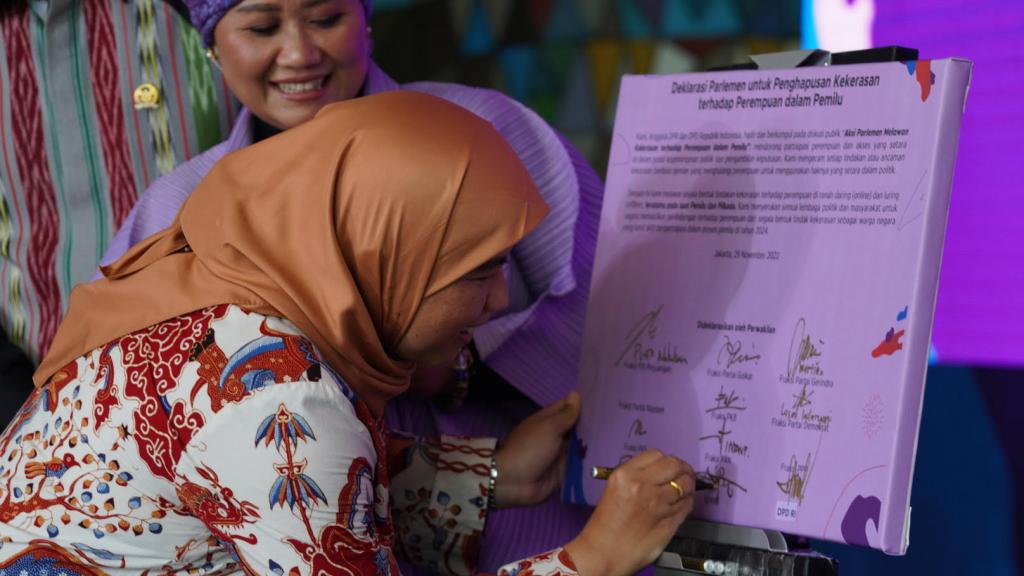 Deklarasi Parlemen untuk Penghapusan Kekerasan
terhadap Perempuan dalam Pemilu
Kami, Anggota DPR dan DPD Republik Indonesia, hadir dan berkumpul pada diskusi publik "Aksi Parlemen Melawan
Kekerasan terhadap Perempuan dalam Pemilu", mendorong partisipasi perempuan dan akses yang setara
di dalam posisi kepemimpinan politik dan pengambilan keputusan. Kami mengecam setiap tindakan atau ancaman
kekerasan berbasis gender yang menghalangi perempuan untuk menggunakan haknya yang setara dalam politik.
Dengan ini kami melawan segala bentuk tindakan kekerasan terhadap perempuan di ranah daring (online) dan luring
(offline), terutama pada saat Pemilu dan Pilkada. Kami menyerukan semua lembaga politik dan masyarakat untuk
segera memastikan perlindungan terhadap perempuan dari segala bentuk tindak kekerasan sebagai warga negara
yang turut serta berpartisipasi dalam proses pemilu di tahun 2024.
Jakarta, 29 November 2022
Dideklarasikan oleh Perwakilan
Fraksi PDI Perjuangan
Fraksi Partai Golkar
Fraksi Partai Gerindra
Fraksi Partai Nasdem
Fraksi PKB
Fraksi Partai Demokrat
Fraksi PAN
Fraksi PPP
DPD RI